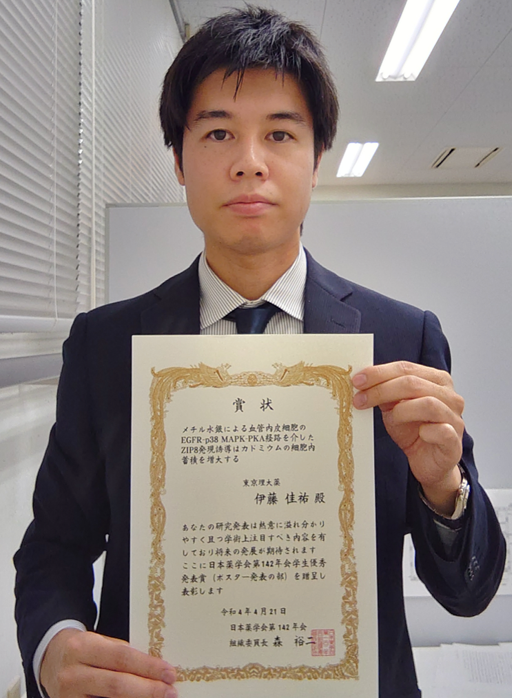 賞状
メチル水銀による血管内皮細胞の
EGFR-p38 MAPK-PKA経路を介した
ZIP8発現誘導はカドミウムの細胞内
蓄積を増大する
東京理大薬
伊藤 佳祐 殿
あなたの研究発表は熱意に溢れ分かり
やすく且つ学術上注目すべき内容を有
しており将来の発展が期待されます
ここに日本薬学会第142年会学生優秀
発表賞（ポスター発表の部）を贈呈し
表彰します
令和4年4月21日
日本薬学会第142年会
組織委員長 森 裕二